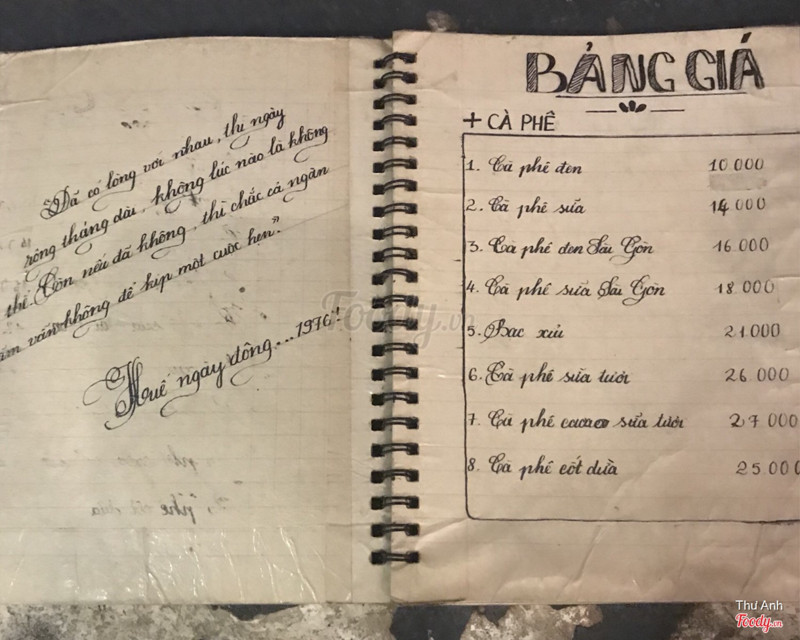 "Đã có lòng với nhau, thì ngày
rộng tháng dài, không lúc nào là không
thể. Còn nếu đã không, thì chắc cả ngàn
năm vẫn không để kịp một cuộc hẹn."
Huế ngày đông...1976!
BẢNG GIÁ
+ CÀ PHÊ
1. Cà phê đen 10 000
2. Cà phê sữa 14 000
3. Cà phê đen Sài Gòn 16 000
4. Cà phê sữa Sài Gòn 18 000
5. Bạc xỉu 21 000
6. Cà phê sữa tươi 26 000
7. Cà phê cacao sữa tươi 27 000
8. Cà phê cốt dừa 25 000
Foody.vn
Thư Anh
Foody.vn